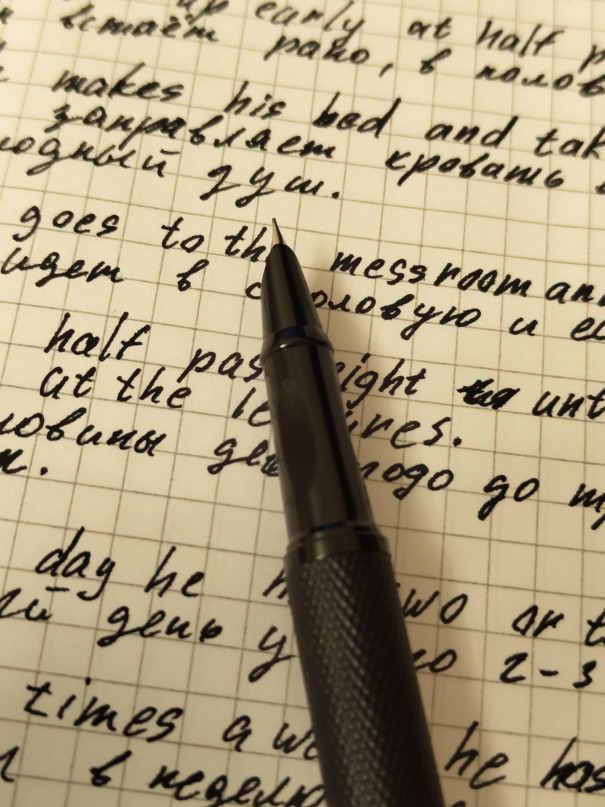 up early at half p
встаёт рано, в полов
makes his bed and tak
заправляет кровать
лодный душ.
goes to the messroom an
идет в столовую и е
half past eight unt
at the lectures.
ловины девятого до т
ж.
day he two or t
день у 2-3
times a we he has
в неделю